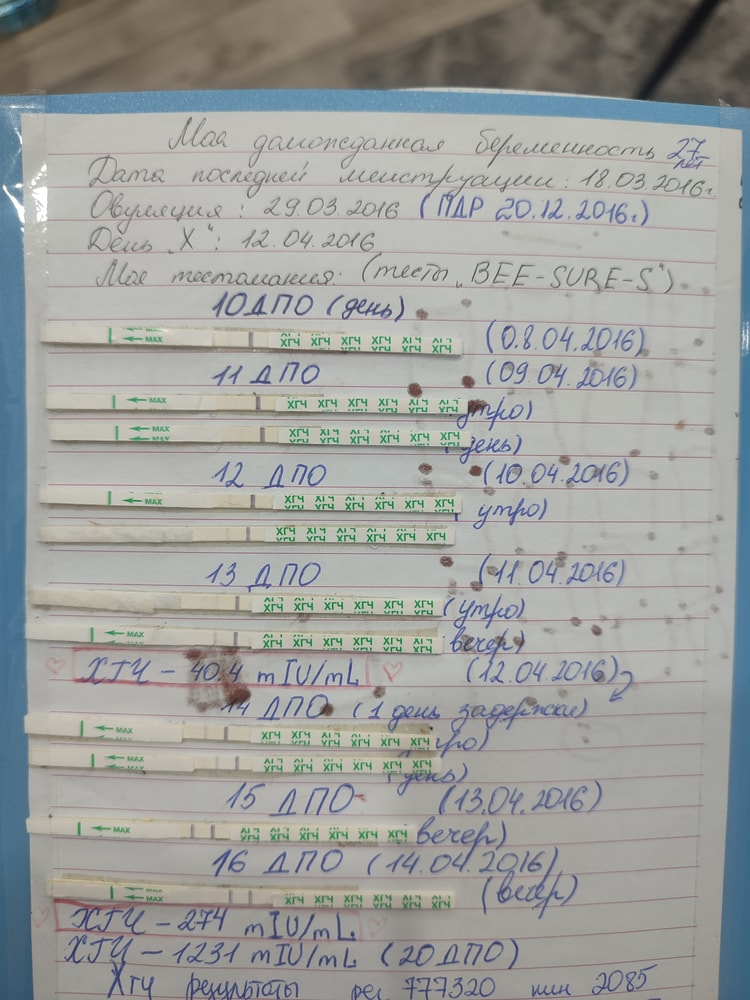 Моя долгожданная беременность 27 лет
Дата последней менструации: 18.03.2016г
Овуляция: 29.03.2016 (ПДР 20.12.2016г.)
День "Х": 12.04.2016
Мое тестомания: (тесты "BEE-SURE-S")
10 ДПО (день)
MAX ХГЧ ХГЧ ХГЧ ХГЧ ХГЧ ХГЧ (08.04.2016)
11 ДПО (09.04.2016)
MAX ХГЧ ХГЧ ХГЧ ХГЧ ХГЧ ХГЧ утро)
MAX ХГЧ ХГЧ ХГЧ ХГЧ ХГЧ ХГЧ день)
12 ДПО (10.04.2016)
MAX ХГЧ ХГЧ ХГЧ ХГЧ ХГЧ ХГЧ утро)
ХГЧ ХГЧ ХГЧ ХГЧ ХГЧ ХГЧ
13 ДПО (11.04.2016)
ХГЧ ХГЧ ХГЧ ХГЧ ХГЧ ХГЧ (утро)
MAX ХГЧ ХГЧ ХГЧ ХГЧ ХГЧ ХГЧ вечер)
ХГЧ - 40.4 mIU/mL (12.04.2016)
14 ДПО (1 день задержки)
MAX ХГЧ ХГЧ ХГЧ ХГЧ ХГЧ ХГЧ ро)
MAX ХГЧ ХГЧ ХГЧ ХГЧ ХГЧ ХГЧ (день)
15 ДПО (13.04.2016)
MAX ХГЧ ХГЧ ХГЧ ХГЧ ХГЧ ХГЧ вечер)
16 ДПО (14.04.2016)
MAX ХГЧ ХГЧ ХГЧ ХГЧ ХГЧ ХГЧ (вечер)
ХГЧ - 274 mIU/mL
ХГЧ - 1231 mIU/mL (20 ДПО)
Хгч результаты рег 777320 пин 2085